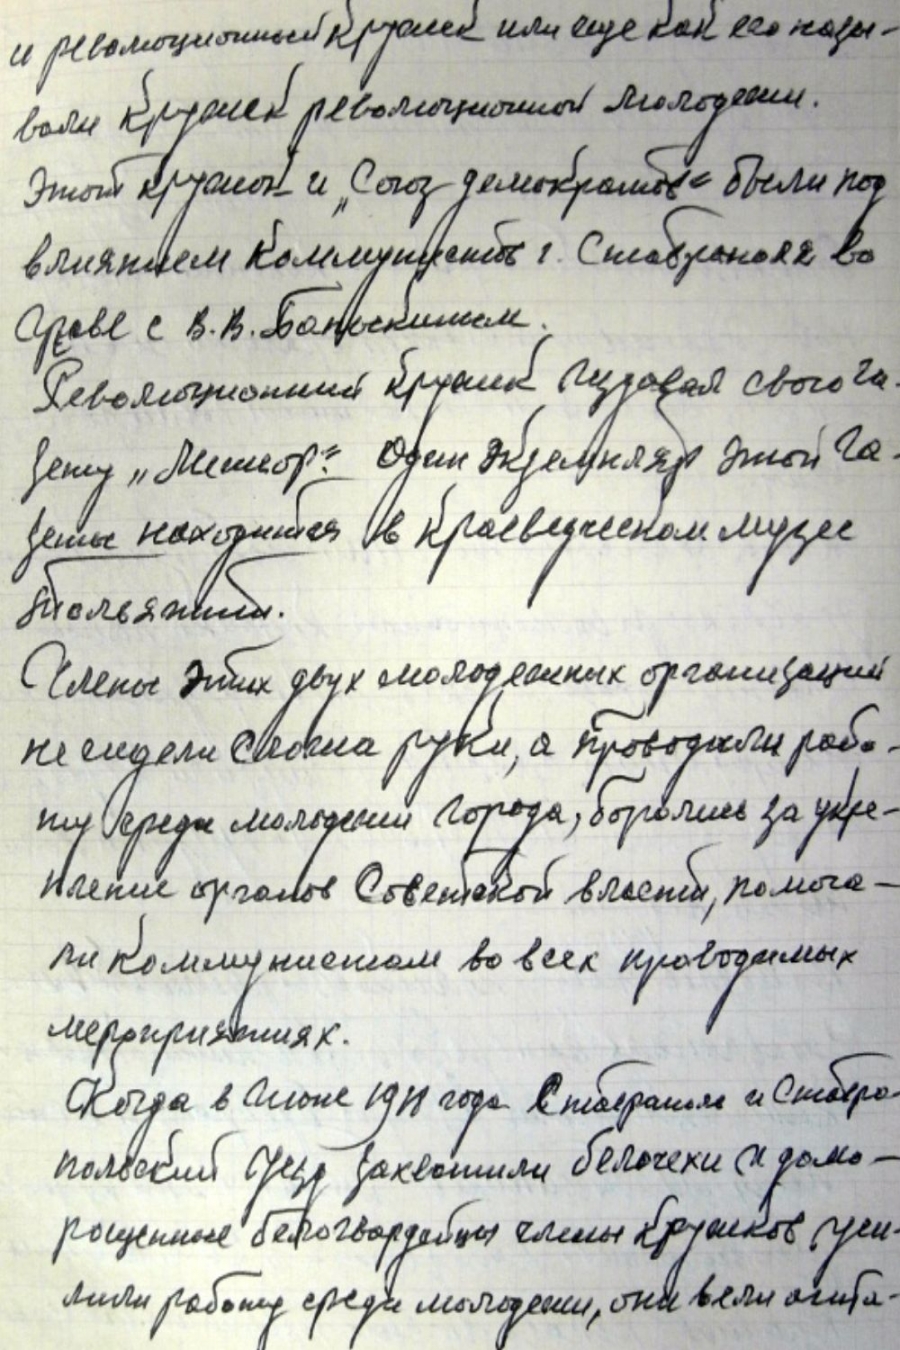 и революционный кружек или еще как его назы-
вали кружек революционной молодежи.
Этот кружок и „Союз демократов“ были под
влиянием коммунистов г. Ставрополя во
главе с В.В. Баныкиным.
Революционный кружек издавал свою га-
зету „Метеор“. Один экземпляр этой га-
зеты находится в краеведческом музее
г. Тольятти.
Члены этих двух молодежных организаций
не сидели сложа руки, а проводили рабо-
ту среди молодежи города, боролись за укре-
пление органов Советской власти, помога-
ли коммунистам во всех проводимых
мероприятиях.
Когда в июне 1918 года Ставрополь и Ставро-
польский уезд захватили белочехи и домо-
рощенные белогвардейцы члены кружков уси-
лили работу среди молодежи, они вели агита-